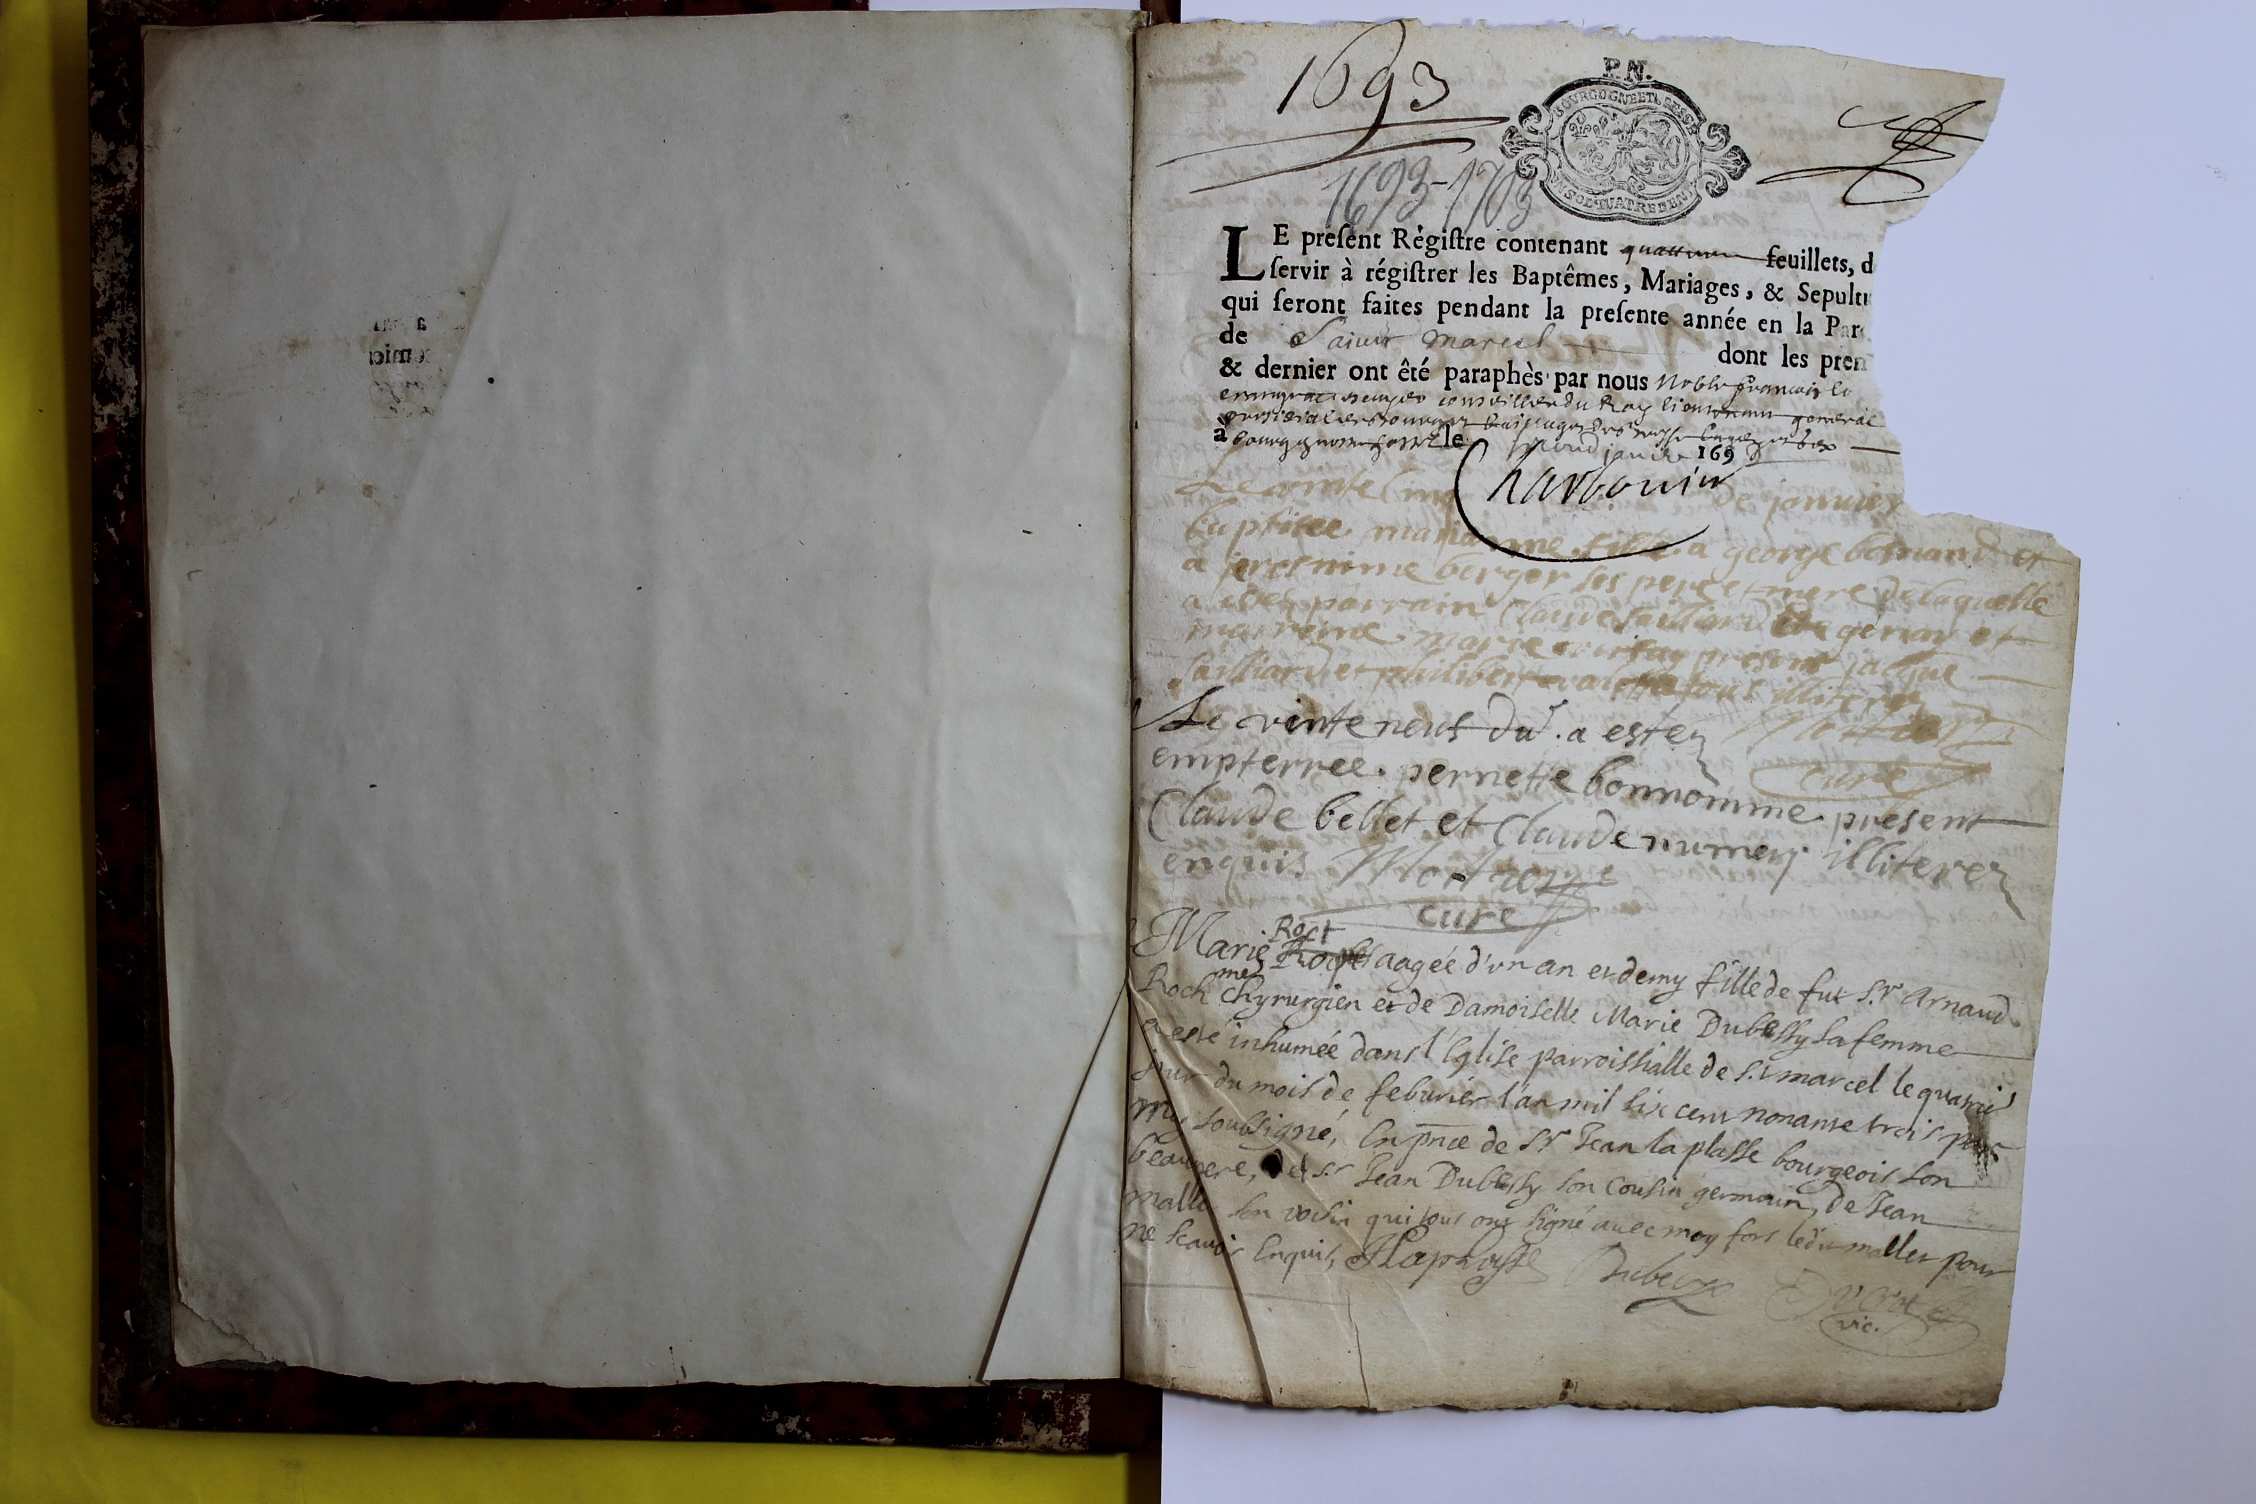 1693
P. N.
BOURGOGNE ET BRESSE
UN SOL QUATRE DEN.
1693-1703
LE present Régistre contenant feuillets, d
servir à régistrer les Baptêmes, Mariages, & Sepultu
qui seront faites pendant la presente année en la Par
de Saint marcel dont les prem
& dernier ont êté paraphès par nous Noble francois
conseiller du Roy lieutenant general
à bourg le janvier 169
Charbonier
Le vinte cinq de janvier
baptisee marianne fille a george bernand et
a jeronime berger ses pere et mere de laquelle
a estez parrain Claude failliand et
marreine marie present jacque
failliard et philibert tous illiterez
Le vinte neuf du. a estez
curé
empterree. pernette bonnomme present
Claude bellet et Claude numery illiterez
enquis
curé
Roct
Marie aagée d'un an et demy fille de fut S.r Arnaud
Roch me Chyrurgien et de Damoiselle Marie Dubessy sa femme
a esté inhumée dans l'Eglise parroissialle de S.t marcel le quatrie
jour du mois de feburier l'an mil six cent nonante trois par
moy soubsigné, En pnce de Sr Jean la plasse bourgeois son
beaupere, de Sr Jean Dubessy son cousin germain, de Jean
mallet son voisin qui tous ont signé avec moy fors ledit mallet pour
ne scavoir Enquis, JLaplasse Dubessy
vic.